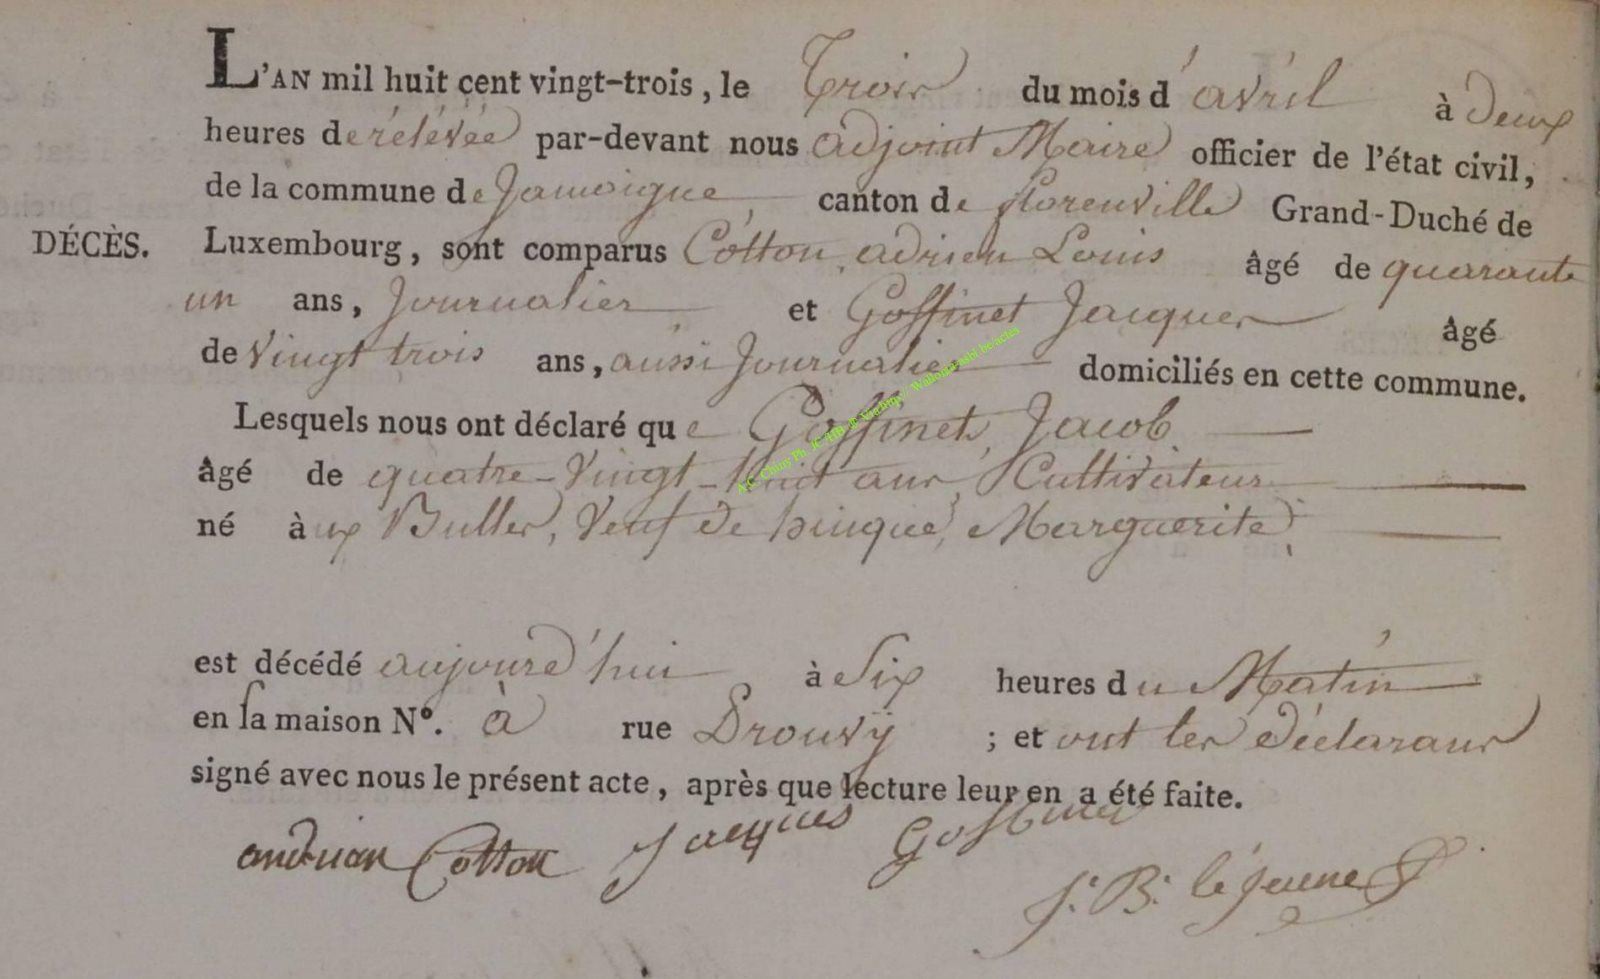 L'AN mil huit cent vingt-trois, le Trois du mois d'avril à deux
heures de rélévée par-devant nous adjoint Maire officier de l'état civil,
de la commune de Jamoigne, canton de florenville Grand-Duché de
DÉCÈS. Luxembourg, sont comparus Cotton, adrien Louis âgé de quarante
un ans, Journalier et Goffinet Jacques âgé
de vingt trois ans, aussi Journalier domiciliés en cette commune.
Lesquels nous ont déclaré que Goffinet, Jacob
âgé de quatre-vingt-huit ans, Cultivateur
né àux Bulles, veuf de hinque, Marguerite,
est décédé aujourd'hui à Six heures du Matin
en sa maison N°. à rue Prouvÿ ; et ont les déclarans
signé avec nous le présent acte, après que lecture leur en a été faite.
andrian Cotton Jacques Goffinet
J. B. léjeune